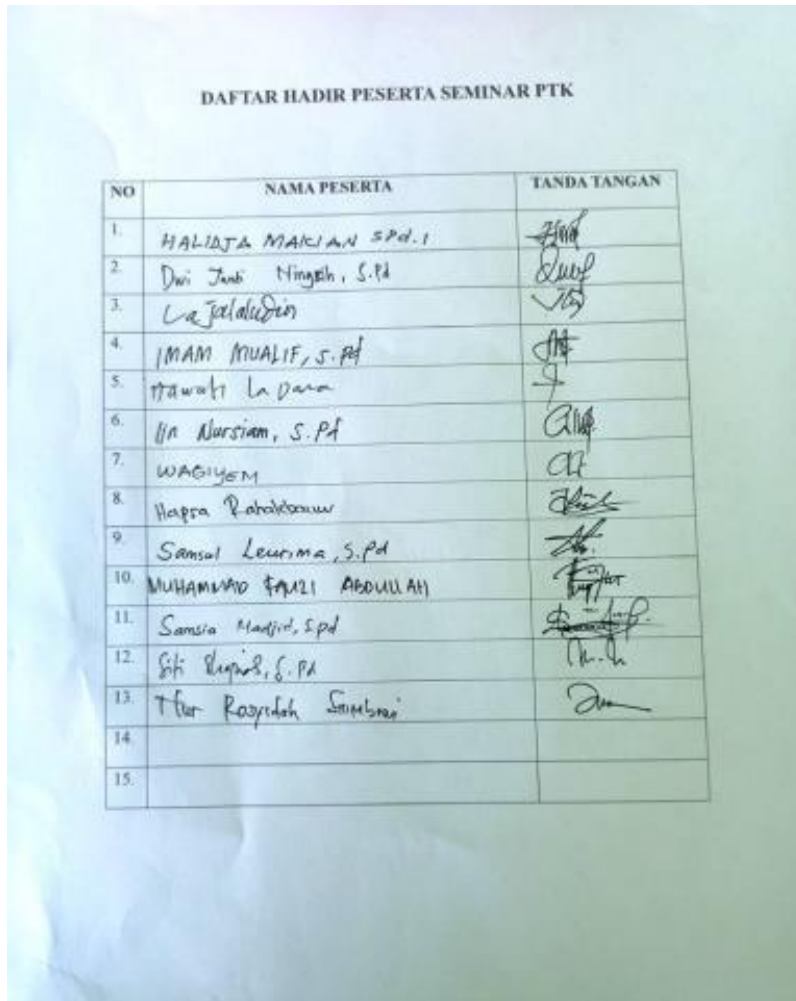 DAFTAR HADIR PESERTA SEMINAR PTK
NO NAMA PESERTA TANDA TANGAN
1. HALIDJA MAKIAN SPd.I
2. Dwi Ningsih, S.Pd
3. La Jalaludin
4. IMAM MUALIF, S.Pd
5. La Dara
6. Iin Nursiam, S.Pd
7. WAGIYEM
8. Hapsa
9. Samsul Leurima, S.Pd
10. MUHAMMAD FAUZI ABDULLAH
11. Samsia Madjid, S.pd
12. Siti S.Pd
13. Nur Rosyidah
14.
15.